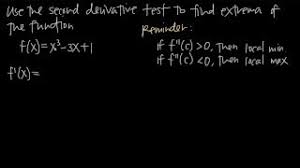 Use the second derivative test to find extrema of
the function
f(x)=x³-3x+1
f'(x)=
Reminder:
if f"(c) >0, then local min
if f"(c) <0, then local max